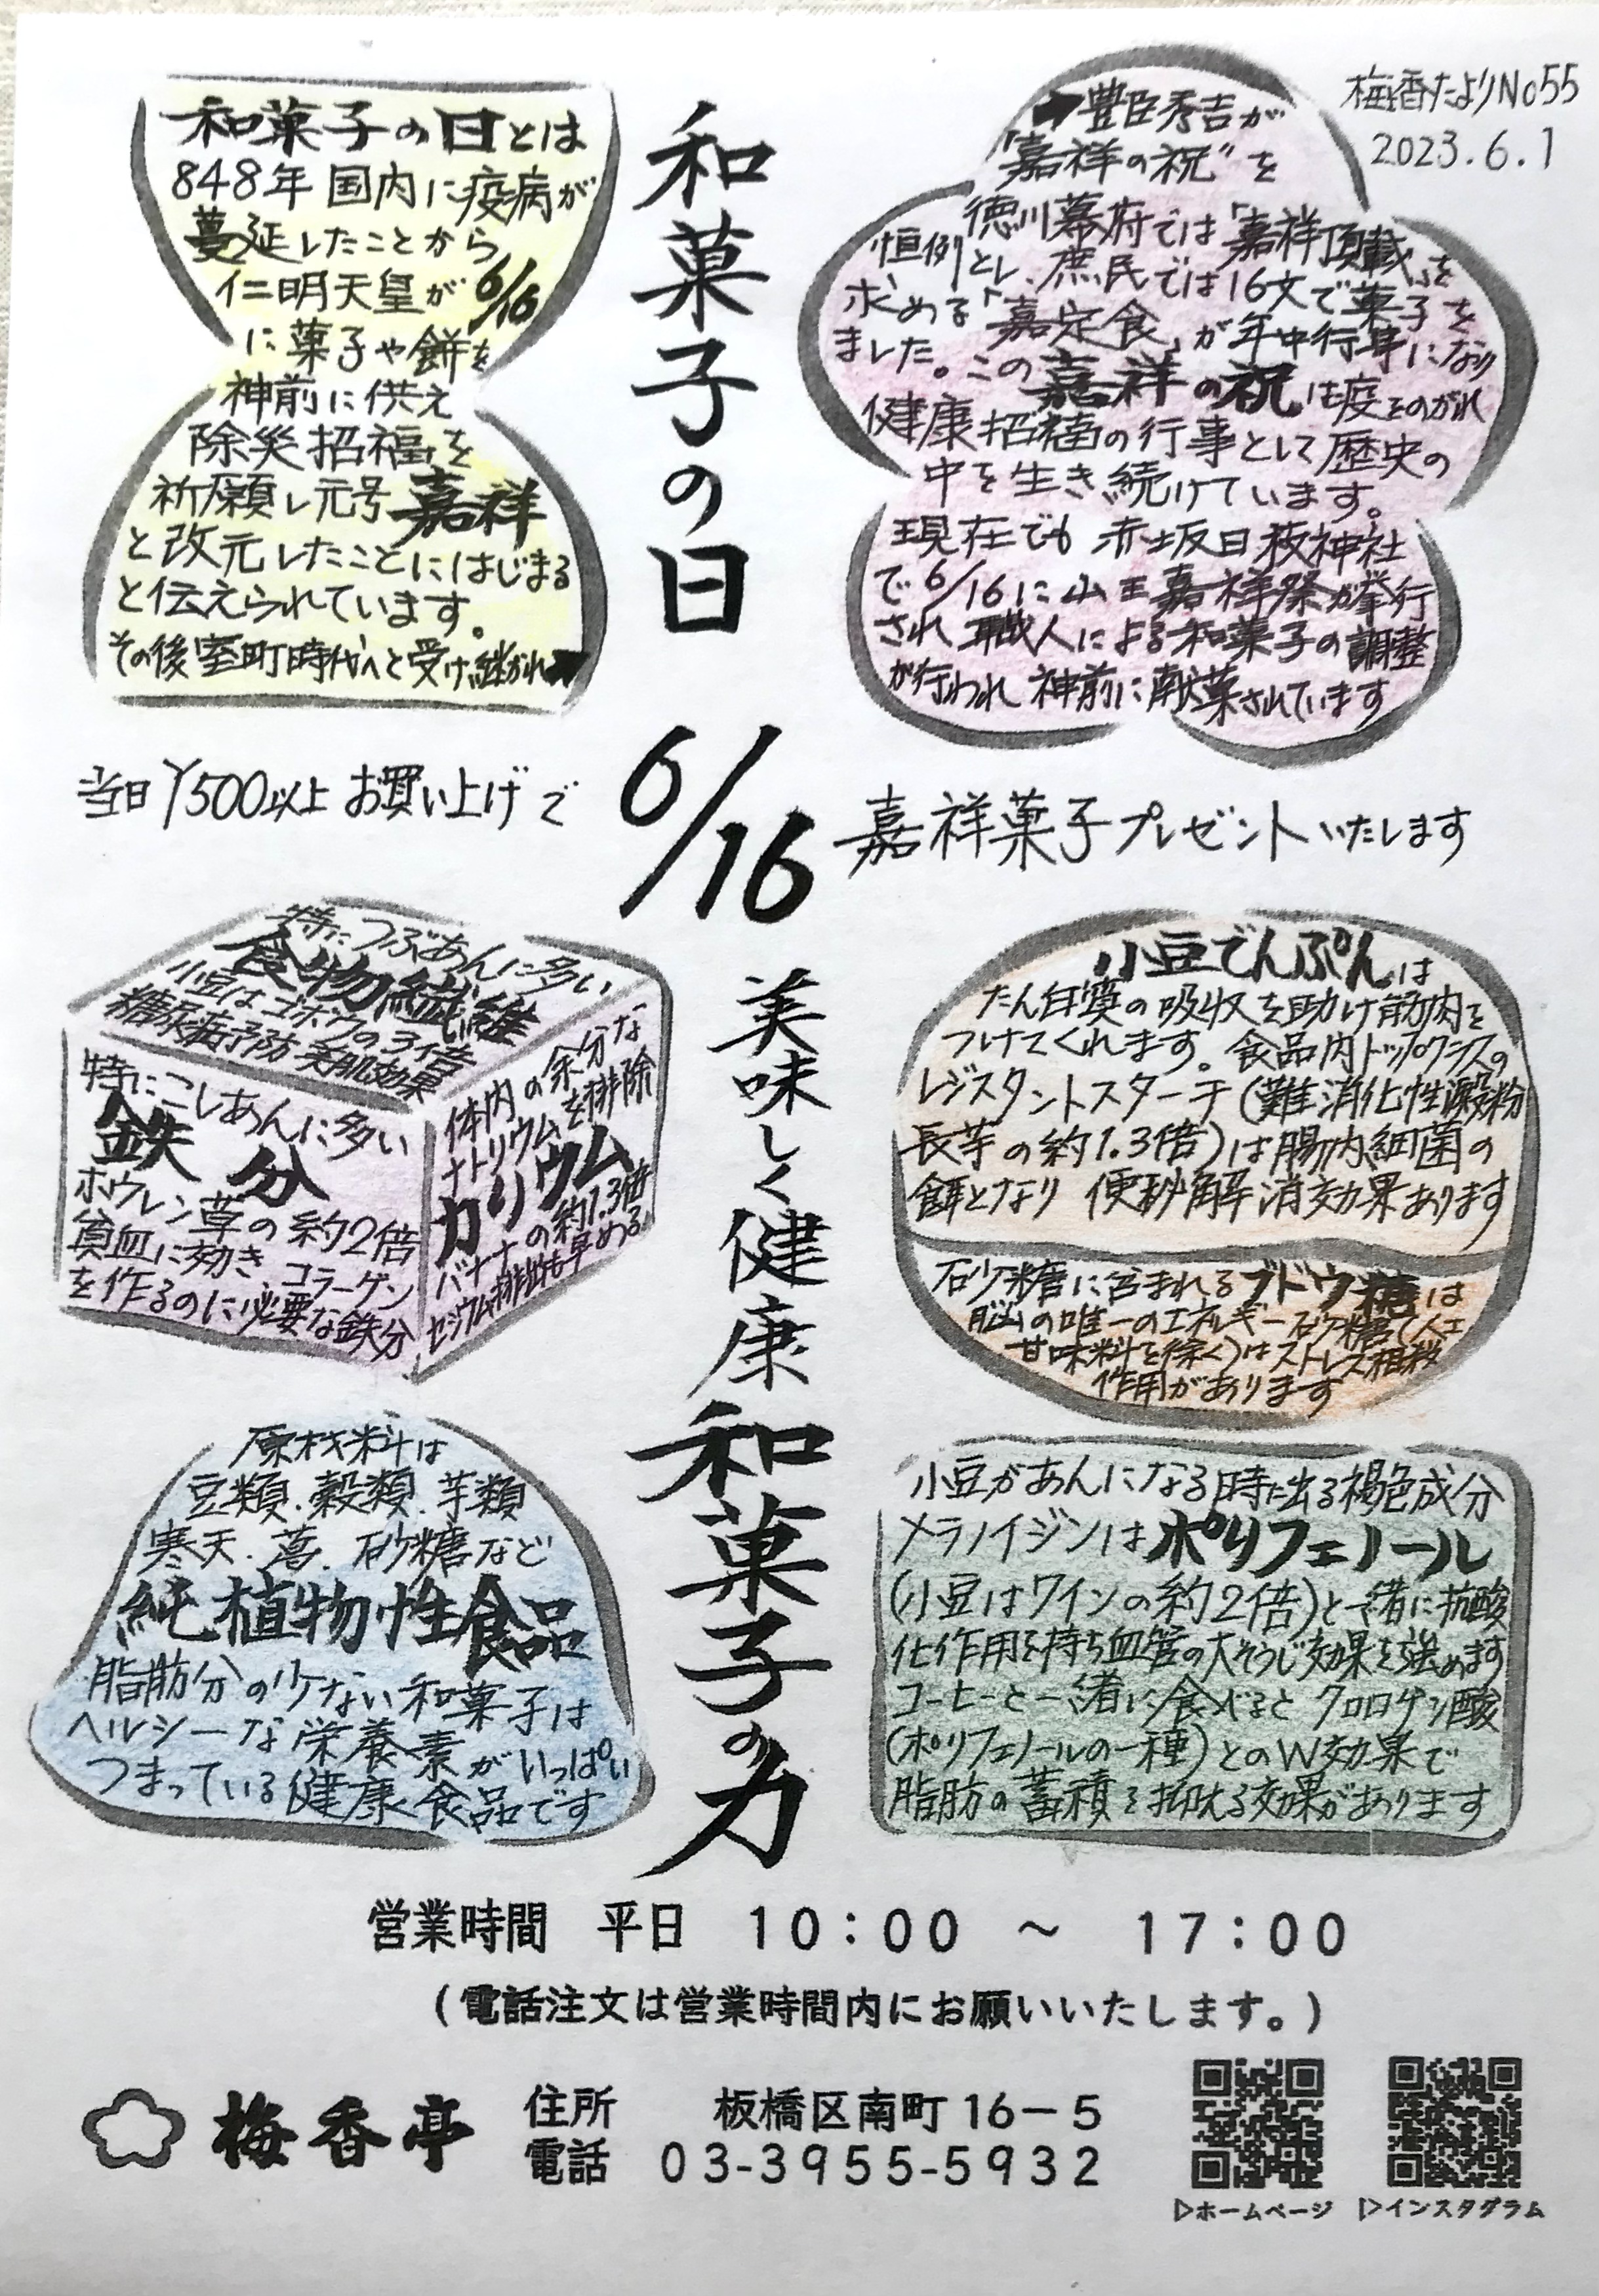 梅香たよりNo55
2023.6.1
和菓子の日
和菓子の日とは
848年国内に疫病が
蔓延したことから
仁明天皇が6/16
に菓子や餅を
神前に供え
除災招福を
祈願し元号嘉祥
と改元したことにはじまる
と伝えられています。
その後室町時代へと受け継がれ➡
➡豊臣秀吉が
"嘉祥の祝"を
徳川幕府では「嘉祥頂載」を
恒例とし、庶民では16文で菓子を
求める「嘉定食」が年中行事になり
ました。この嘉祥の祝は疫をのがれ
健康招福の行事として歴史の
中を生き続けています。
現在でも 赤坂日枝神社
で6/16に山王嘉祥祭が挙行
され職人による和菓子の調整
が行われ神前に献菓されています
当日¥500以上お買い上げで
6/16
嘉祥菓子プレゼントいたします
美味しく健康和菓子の力
特につぶあんに多い
食物繊維
小豆はゴボウの3倍
糖尿病予防 美肌効果
特にこしあんに多い
鉄分
ホウレン草の約2倍
貧血に効き コラーゲン
を作るのに必要な鉄分
体内の余分な
ナトリウムを排除
カリウム
バナナの約1.3倍
セシウム排出も早める
小豆でんぷんは
たん白質の吸収を助け筋肉を
つけてくれます。食品内トップクラスの
レジスタントスターチ(難消化性澱粉
長芋の約1.3倍)は腸内細菌の
餌となり 便秘解消効果あります
砂糖に含まれるブドウ糖は
脳の唯一のエネルギー砂糖(人工
甘味料を除く)はストレス相殺
作用があります
原材料は
豆類.穀類.芋類
寒天.葛.砂糖など
純植物性食品
脂肪分の少ない和菓子は
ヘルシーな栄養素がいっぱい
つまっている健康食品です
小豆があんになる時に出る褐色成分
メラノイジンはポリフェノール
(小豆はワインの約2倍)と一緒に抗酸
化作用を持ち血管の大そうじ効果を強めます
コーヒーと一緒に食べるとクロロゲン酸
(ポリフェノールの一種)とのW効果で
脂肪の蓄積を抑える効果があります
営業時間 平日 10:00 ～ 17:00
(電話注文は営業時間内にお願いいたします。)
梅香亭
住所 板橋区南町16－5
電話 03-3955-5932
▷ホームページ ▷インスタグラム